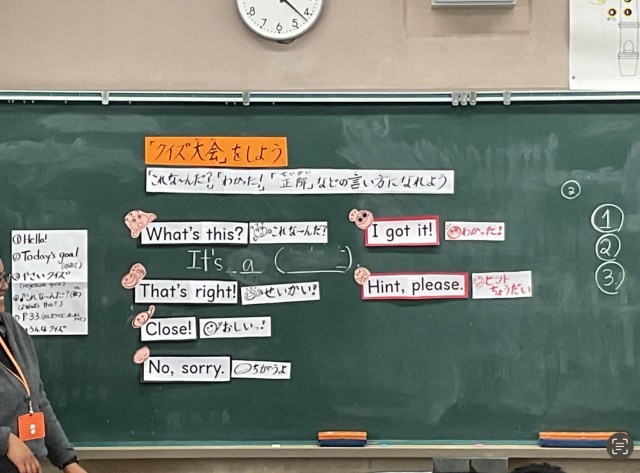 「クイズ大会」をしよう
「これな〜んだ?」「わかった!」「正解」などの言い方になれよう
What's this? これな〜んだ?
It's a ( )
That's right! せいかい!
Close! おしいっ!
No, sorry. ちがうよ
I got it! わかった!
Hint, please. ヒントちょうだい
① Hello!
② Today's goal
やさいクイズ
P.33
②
①
②
③
8
7
6
5
4